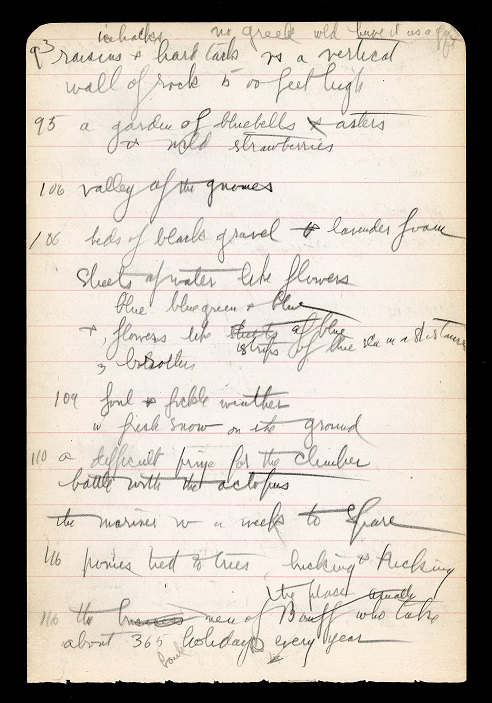 no greek wld have it as a gift
93 raisins & hard tack vs a vertical
wall of rock 500 feet high
95 a garden of bluebells & asters
& wild strawberries
106 valley of the gnomes
106 beds of black gravel & lavender foam
Sheets of water like flowers
blue blue green & blue
& flowers like sheets of blue
strips of blue sea in a distance
109 foul & fickle weather
w fresh snow on the ground
110 a difficult prize for the climber
battle with the octopus
the mariner w a week to spare
116 ponies tied to trees bucking & kicking
the place usually
110 the business men of Banff who take
about 365 holidays every year
bank